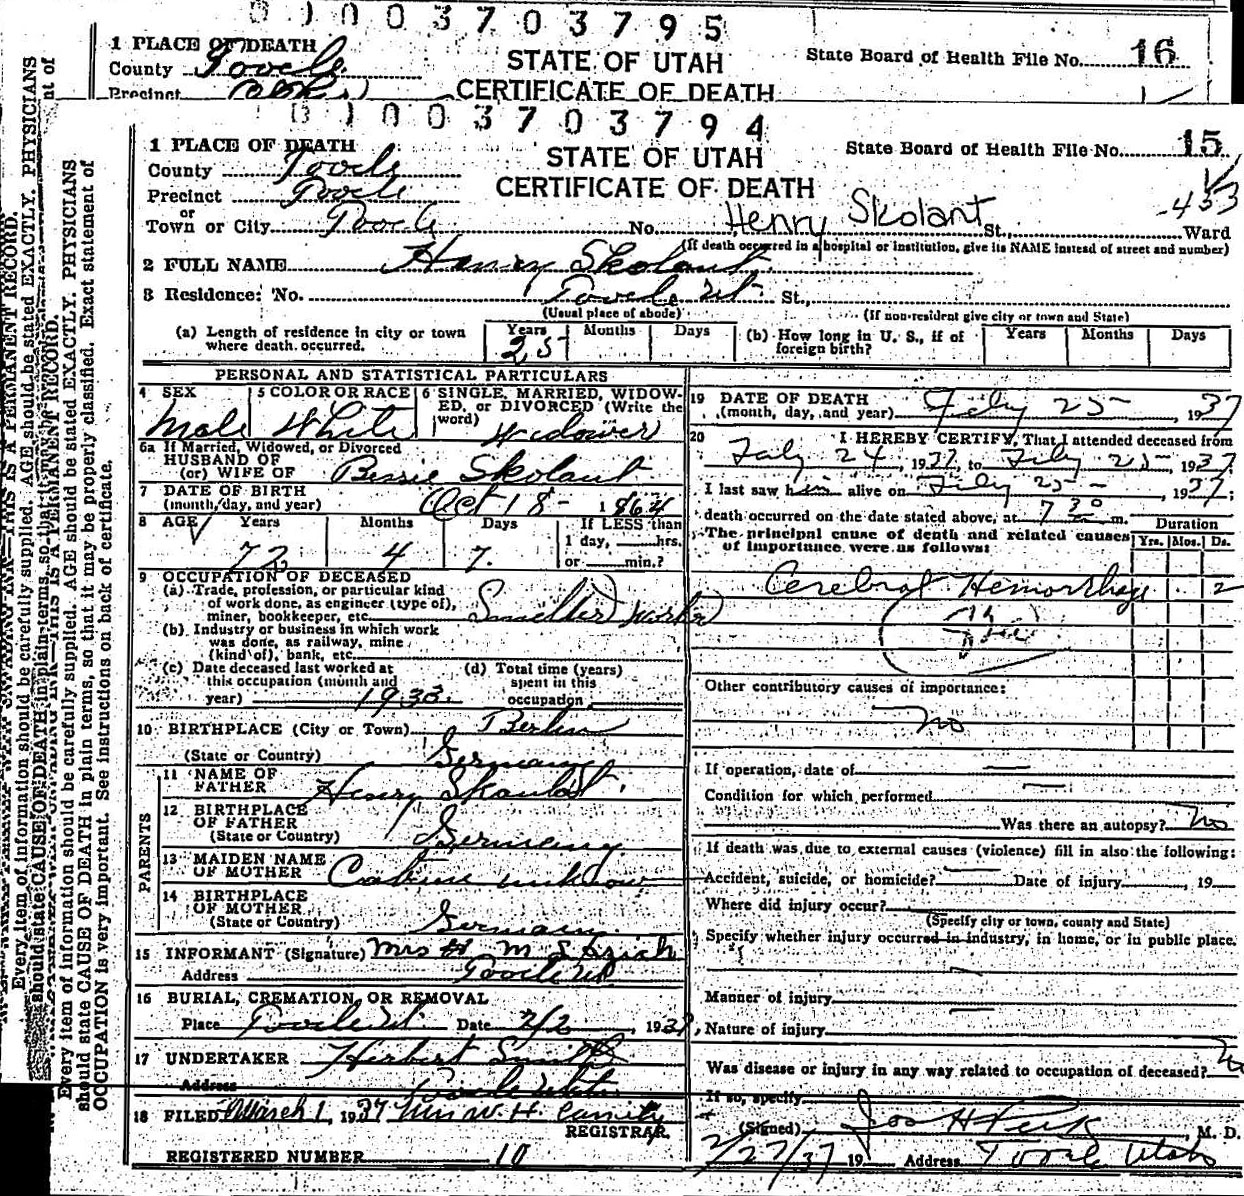 0 1 0 0 3 7 0 3 7 9 5
1 PLACE OF DEATH
County Tooele
Precinct
STATE OF UTAH
CERTIFICATE OF DEATH
State Board of Health File No. 16
0 1 0 0 3 7 0 3 7 9 4
1 PLACE OF DEATH
County Tooele
Precinct Tooele
or
Town or City Tooele
STATE OF UTAH
CERTIFICATE OF DEATH
State Board of Health File No. 15
-453
No. Henry Skolant St., Ward
(If death occurred in a hospital or institution, give its NAME instead of street and number)
2 FULL NAME Henry Skolant
3 Residence: No. Tooele Ut. St.,
(Usual place of abode) (If non-resident give city or town and State)
(a) Length of residence in city or town where death occurred. Years 25 Months Days
(b) How long in U. S., if of foreign birth? Years Months Days
PERSONAL AND STATISTICAL PARTICULARS
4 SEX Male
5 COLOR OR RACE White
6 SINGLE, MARRIED, WIDOWED, or DIVORCED (Write the word) Widower
6a If Married, Widowed, or Divorced
HUSBAND OF
(or) WIFE OF Bessie Skolant
7 DATE OF BIRTH
(month, day, and year) Oct 18 - 1864
8 AGE Years 72 Months 4 Days 7
If LESS than
1 day, hrs.
or min.?
9 OCCUPATION OF DECEASED
(a) Trade, profession, or particular kind
of work done, as engineer (type of),
miner, bookkeeper, etc. Smelter Worker
(b) Industry or business in which work
was done, as railway, mine
(kind of), bank, etc.
(c) Date deceased last worked at
this occupation (month and
year) 1933
(d) Total time (years)
spent in this
occupation
10 BIRTHPLACE (City or Town) Berlin
(State or Country) Germany
PARENTS
11 NAME OF
FATHER Henry
12 BIRTHPLACE
OF FATHER
(State or Country) Germany
13 MAIDEN NAME
OF MOTHER unknow
14 BIRTHPLACE
OF MOTHER
(State or Country) Germany
15 INFORMANT (Signature) Mrs M
Address Tooele Ut
16 BURIAL, CREMATION, OR REMOVAL
Place Tooele Ut. Date , 1937
17 UNDERTAKER Herbert Smith
Address Tooele Utah
18 FILED March 1, 1937 Mrs W. H.
REGISTRAR.
REGISTERED NUMBER 10
19 DATE OF DEATH
(month, day, and year) Feby 25 - 1937
20 I HEREBY CERTIFY, That I attended deceased from
Feby 24, 1937, to Feby 25 - 1937
I last saw him alive on Feby 25 - , 1937;
death occurred on the date stated above, at 7 30 m.
The principal cause of death and related causes
of importance were as follows:
Duration
Yrs. Mos. Ds.
Cerebral Hemorrhage 2
Other contributory causes of importance:
no
If operation, date of
Condition for which performed
Was there an autopsy? No
If death was due to external causes (violence) fill in also the following:
Accident, suicide, or homicide? Date of injury , 19
Where did injury occur?
(Specify city or town, county and State)
Specify whether injury occurred in industry, in home, or in public place.
Manner of injury
Nature of injury
Was disease or injury in any way related to occupation of deceased? No
If so, specify
(Signed) Jos H Peck M. D.
2/27/37 19 Address Tooele Utah
Every item of information should be carefully supplied. AGE should be stated EXACTLY. PHYSICIANS
should state CAUSE OF DEATH in plain terms, so that it may be properly classified. Exact statement of
OCCUPATION is very important. See instructions on back of certificate.